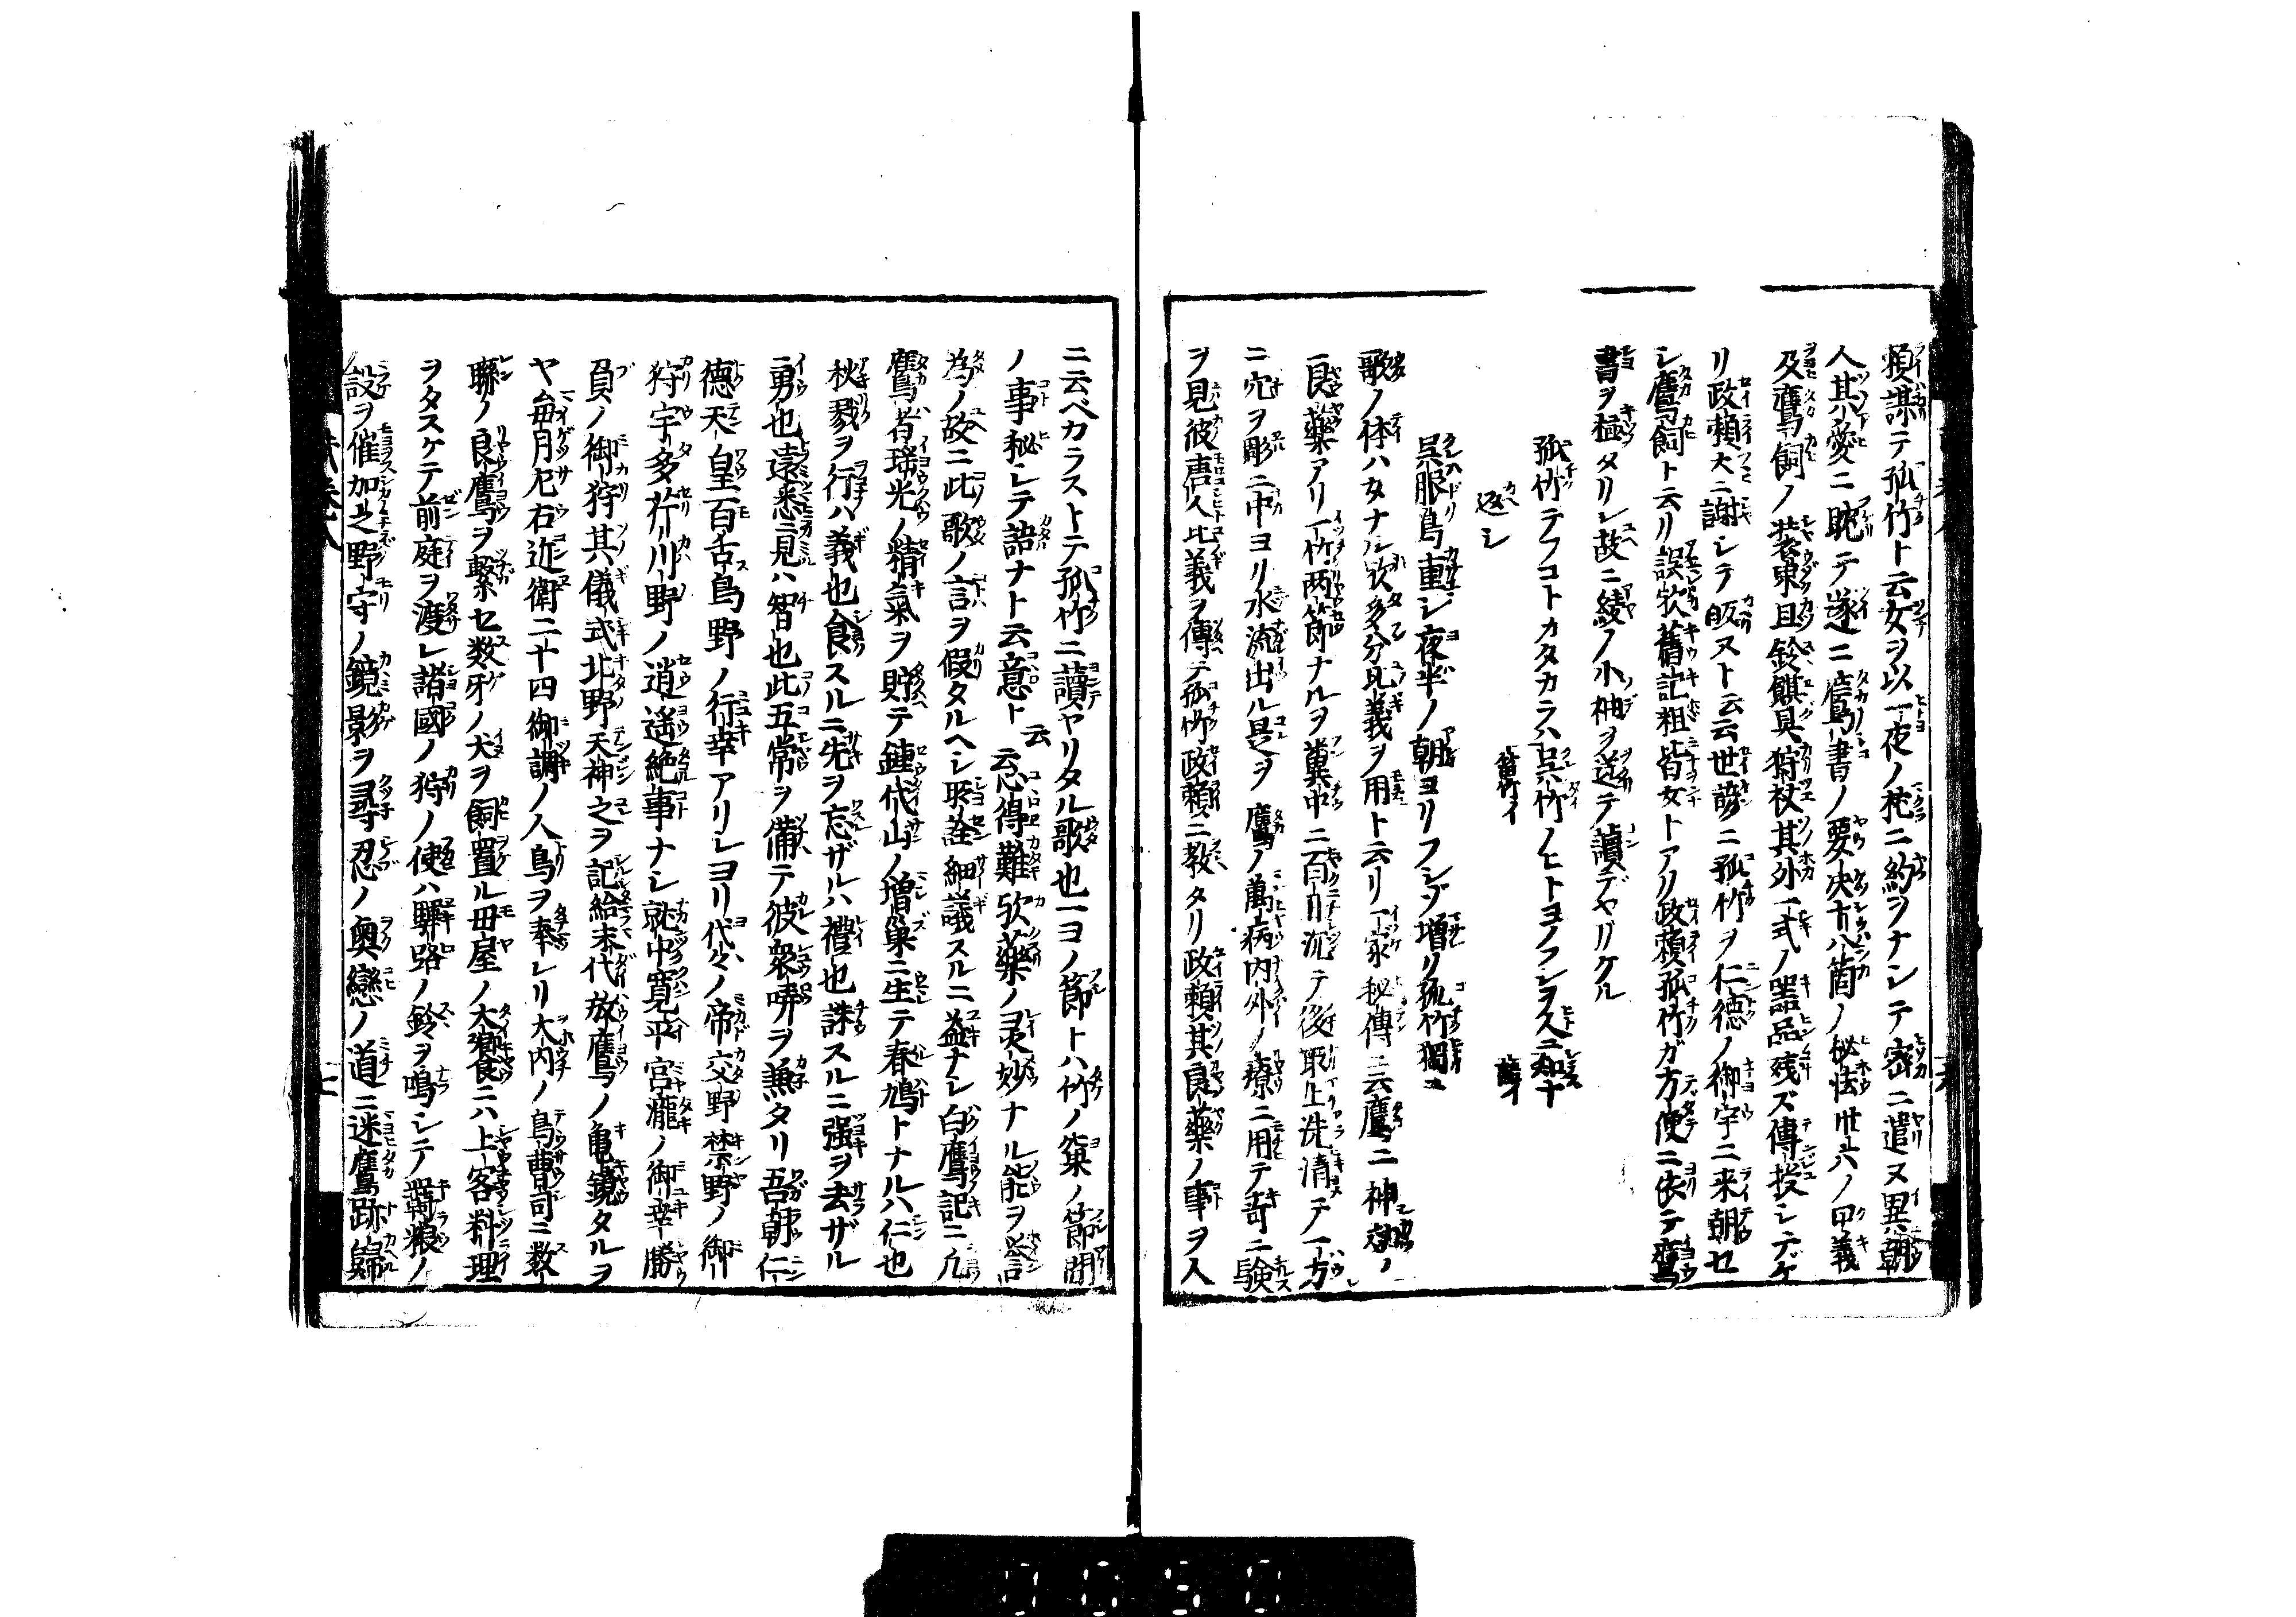 頼謀テ孤竹ト云女ヲ以一夜ノ枕ニ約ヲナシテ密ニ遣ヌ異朝
人其愛ニ耽テ遂ニ鷹書ノ要决十八箇ノ秘法卅六ノ口義
及鷹飼ノ装束且鈴餌具狩杖其外一式ノ噐品残ズ傳授シテケ
リ政頼大ニ謝シテ皈ヌト云云世諺ニ孤竹ヲ仁德ノ御宇ニ来朝セ
シ鷹飼ト云リ誤欤舊記粗皆女トアリ政頼孤竹ガ方便ニ依テ鷹
書ヲ極タリシ故ニ綾ノ小袖ヲ送テ讀デヤリケル
孤竹テフコトカタカラハ呉竹ノヒトヨノフシヲ人ニ知ナ
返シ
呉服鳥重シ夜半ノ朝ヨリフシゾ増リ孤竹獨ニ
歌ノ体ハ女ナル欤多分此義ヲ用ト云リ一家秘傳ニ云鷹ニ神効ノ
良藥アリ一竹両節ナルヲ糞中ニ百日沉テ後取上洗清テ一方
ニ穴ヲ彫ニ中ヨリ水流出ル是ヲ鷹ノ萬病内外ノ療ニ用テ奇ニ験
ヲ見彼唐人此義ヲ傳テ孤竹政頼ニ教タリ政頼其良藥ノ事ヲ人
ニ云ベカラストテ孤竹ニ讀ヤリタル歌也一ヨノ節トハ竹ノ節間
ノ事秘シテ語ナト云意ト云云心得難欤藥ノ灵妙ナル能ヲ言
為ノ故ニ此歌ノ言ヲ假タルヘシ所詮細議スルニ益ナシ白鷹記ニ凢
鷹者瑶光ノ精氣ヲ貯テ鍾代山ノ増巣ニ生テ春鳩トナルハ仁也
秋戮ヲ行ハ義也食スルニ先ヲ忘ザルハ禮也誅スルニ强ヲ去ザル
勇也遠悉ニ見ハ智也此五常ヲ備テ彼衆哢ヲ兼タリ吾朝仁
德天皇百舌鳥野ノ行幸アリシヨリ代々ノ帝交野禁野ノ御
狩宇多芹川野ノ逍遥絶事ナシ就中寛平宮瀧ノ御幸勝
負ノ御狩其儀式北野天神之ヲ記給末代放鷹ノ亀鏡タルヲ
ヤ毎月左右近衛二十四御調ノ人鳥ヲ奉レリ大内ノ鳥曹司ニ数
聯ノ良鷹ヲ繋セ数牙ノ犬ヲ飼置ル母屋ノ大饗食ニハ上客料理
ヲタスケテ前庭ヲ渡シ諸國ノ狩ノ使ハ驛路ノ鈴ヲ鳴シテ羇粮ノ
設ヲ催加之野守ノ鏡影ヲ尋忍ノ奥戀ノ道ニ迷鷹跡歸